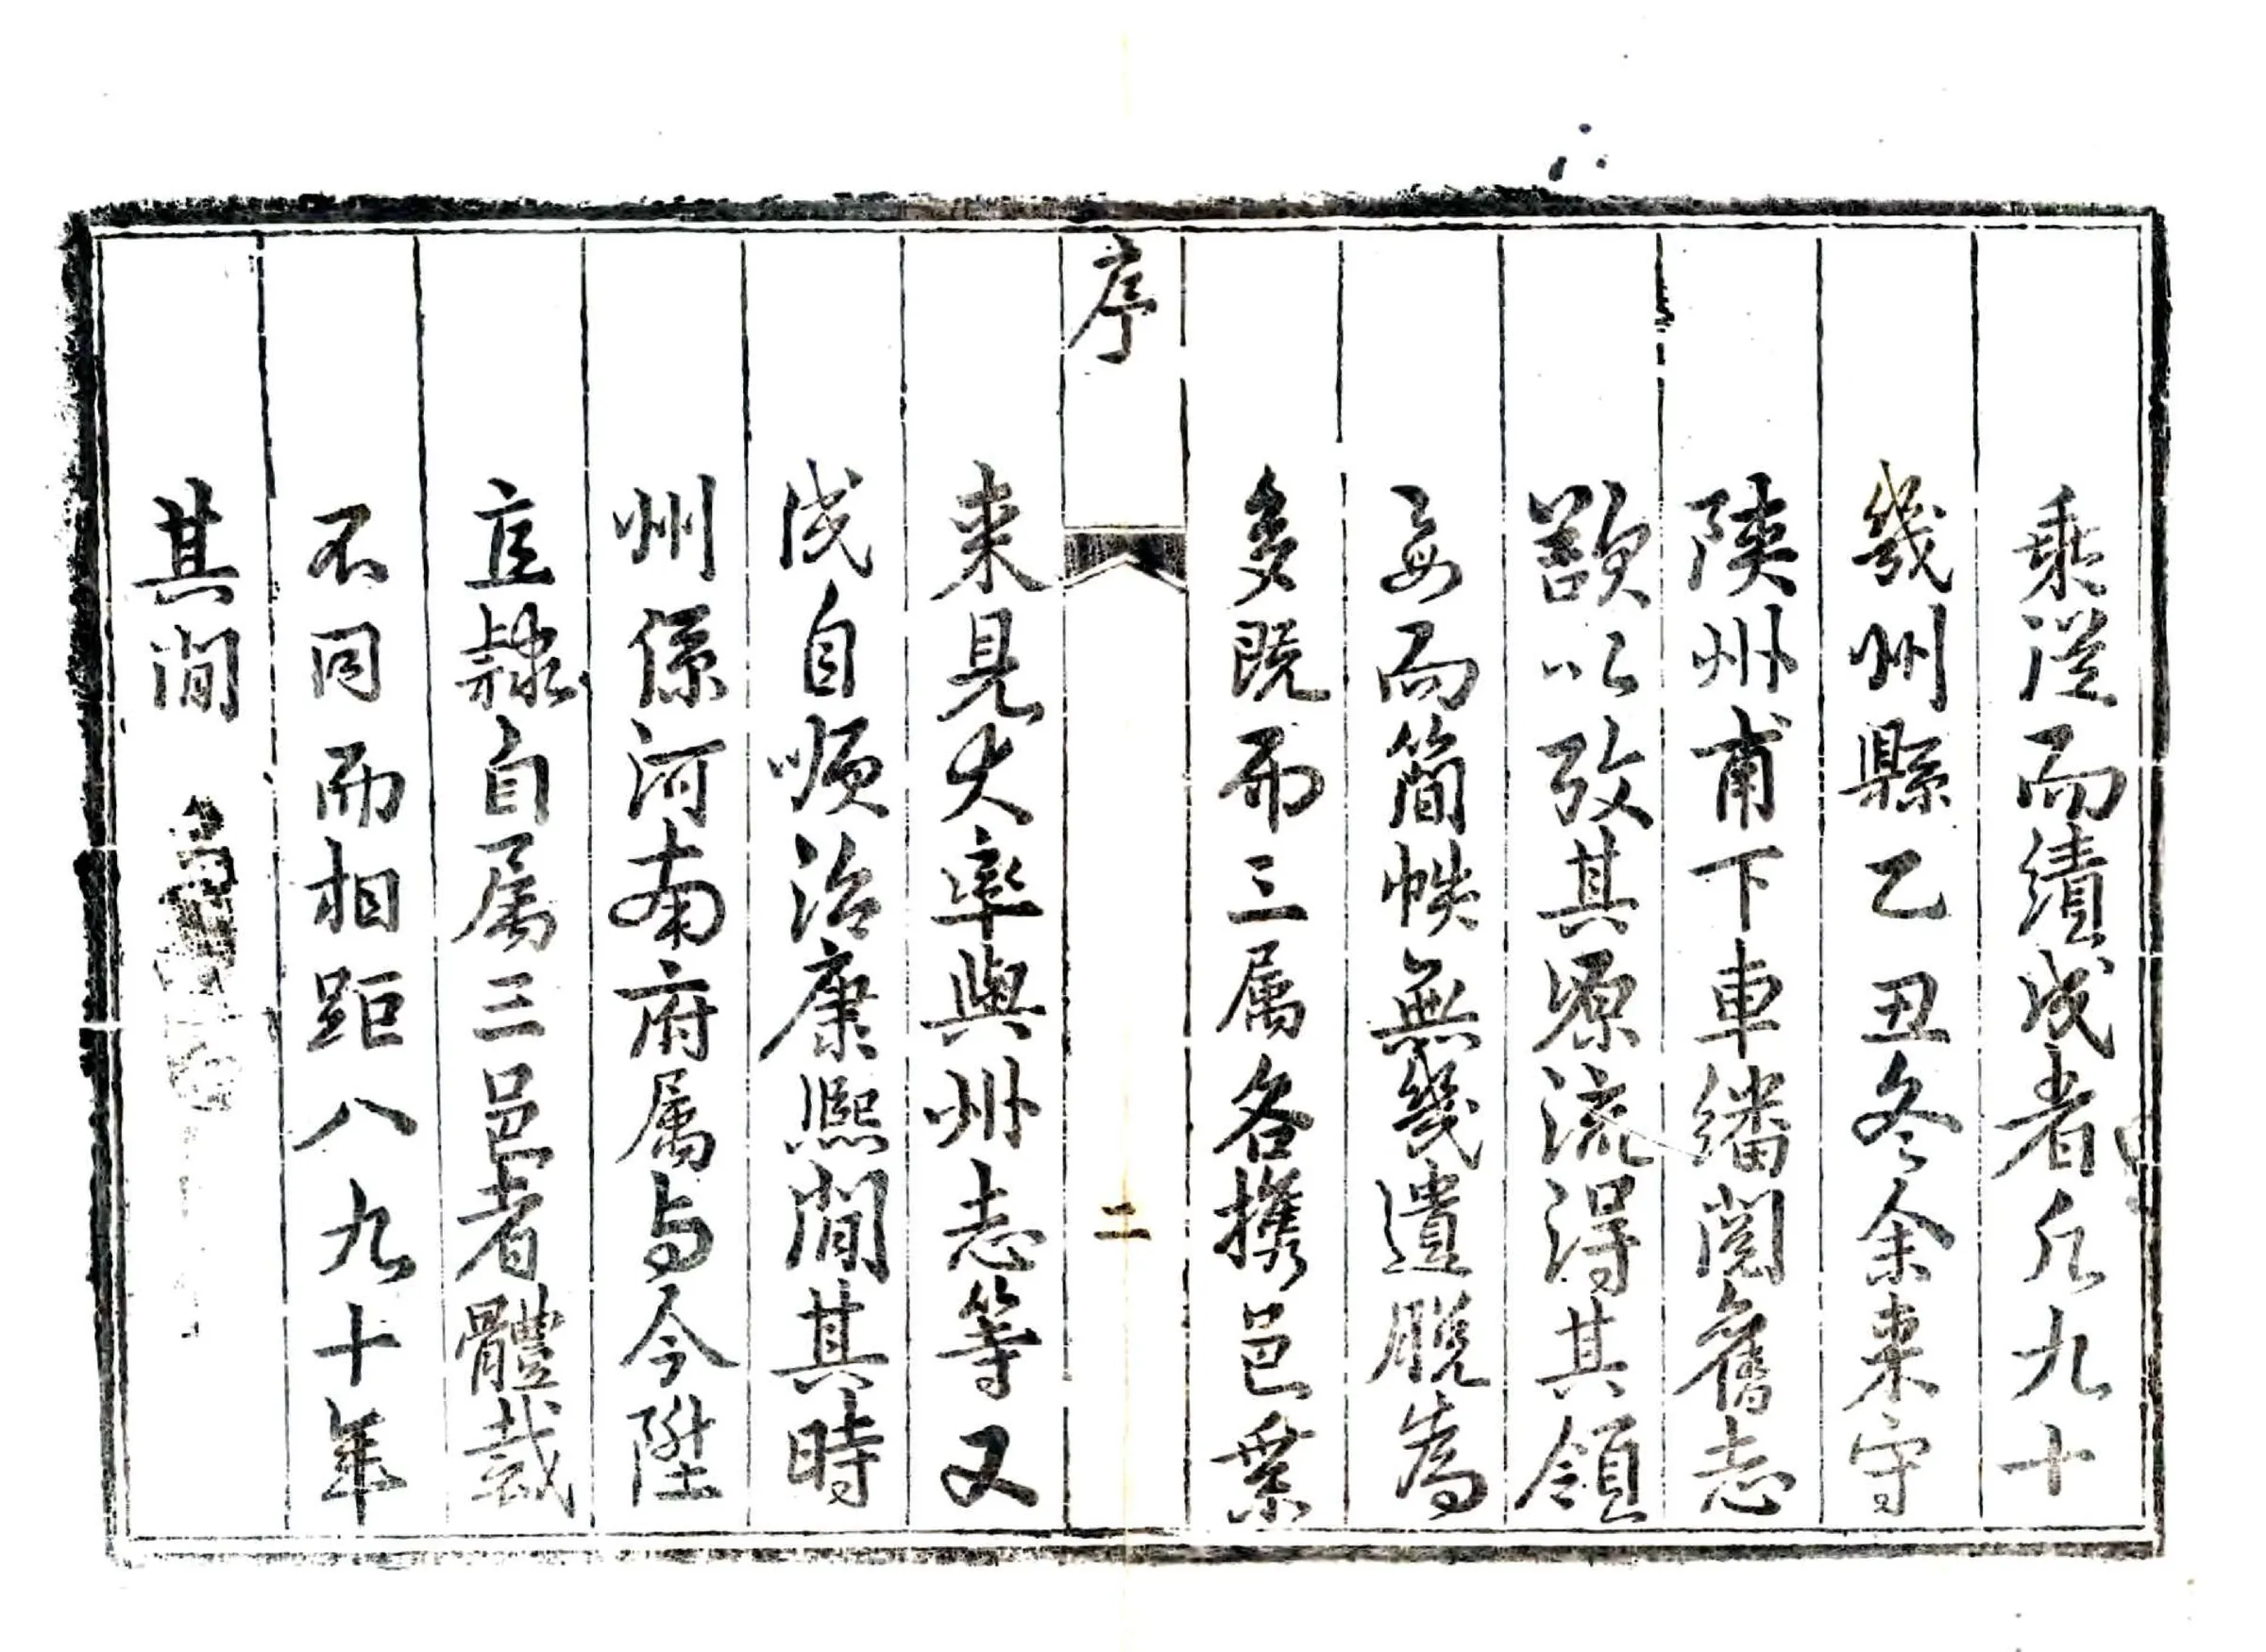 乘從而績成者凡九十
幾州縣乙丑冬余来守
陝州甫下車繙閱舊志
歎以攷其源流得其領
要而簡帙無幾遺脱為
多既而三属各攜邑乘
序
二
来見大率與州志等又
成自順治康熙間其時
州係河南府属与今陞
直隷自属三邑者體裁
不同而相距八九十年
其間